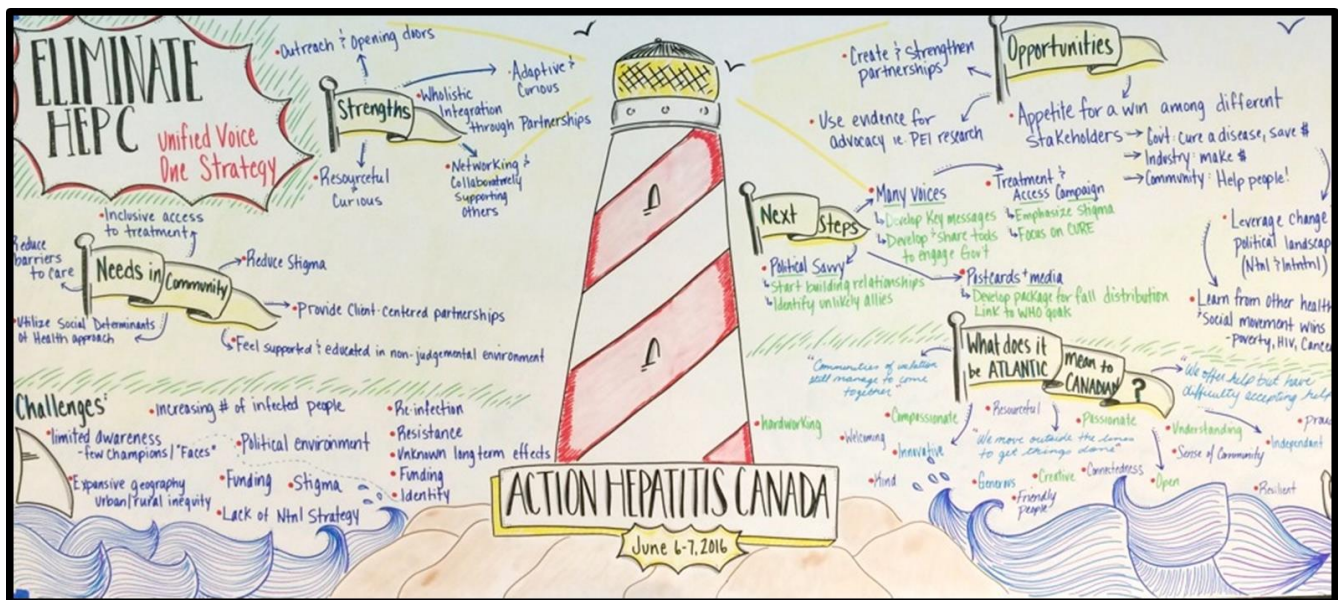 ELIMINATE
HEPC
Unified Voice
One Strategy
•Outreach & Opening doors
Strengths
•Adaptive &
Curious
•Wholistic
Integration
through Partnerships
•Resourceful
Curious
•Networking &
Collaboratively
Supporting
Others
•Inclusive access
to treatment
Reduce
barriers
to care
Needs in Community
•Reduce Stigma
•Provide Client-centered partnerships
•Utilize Social Determinants
of Health approach
•Feel supported & educated in non-judgemental environment
Challenges:
•Increasing # of infected people
•limited awareness
-few Champions/"Faces"
•Political environment
•Expansive geography
urban/rural inequity
•Funding
•Stigma
•Lack of Ntnl Strategy
•Re-infection
•Resistance
•Unknown long term effects
•Funding
•Identity
ACTION HEPATITIS CANADA
June 6-7, 2016
Opportunities
•Create & strengthen
partnerships
•Use evidence for
advocacy ie. PEI research
•Appetite for a win among different
stakeholders → Gov't: cure a disease, save $
→ Industry: make $
→ Community: Help people!
•Leverage change
political landscap
(Ntnl & Intntnl)
•Learn from other health
& social movement wins
-poverty, HIV, Cance
Next Steps
•Many Voices
↳Develop Key messages
↳Develop & share tools
to engage Gov't
•Treatment &
Access Campaign
↳Emphasize Stigma
↳Focus on CURE
•Political Savvy
↳Start building relationships
↳Identify unlikely allies
•Postcards + media
↳Develop package for fall distribution
Link to WHO goals
What does it mean to
be ATLANTIC CANADIAN ?
"Communities of isolation
still manage to come
together"
"We offer help but have
difficulty accepting help
•hardworking
•Compassionate
•Welcoming
•Innovative
•Kind
•Resourceful
"We move outside the lines
to get things done"
•Generous
•Friendly
People
•Creative
•Connectedness
•Passionate
•Open
•Understanding
•Sense of Community
•Independent
•Resilient